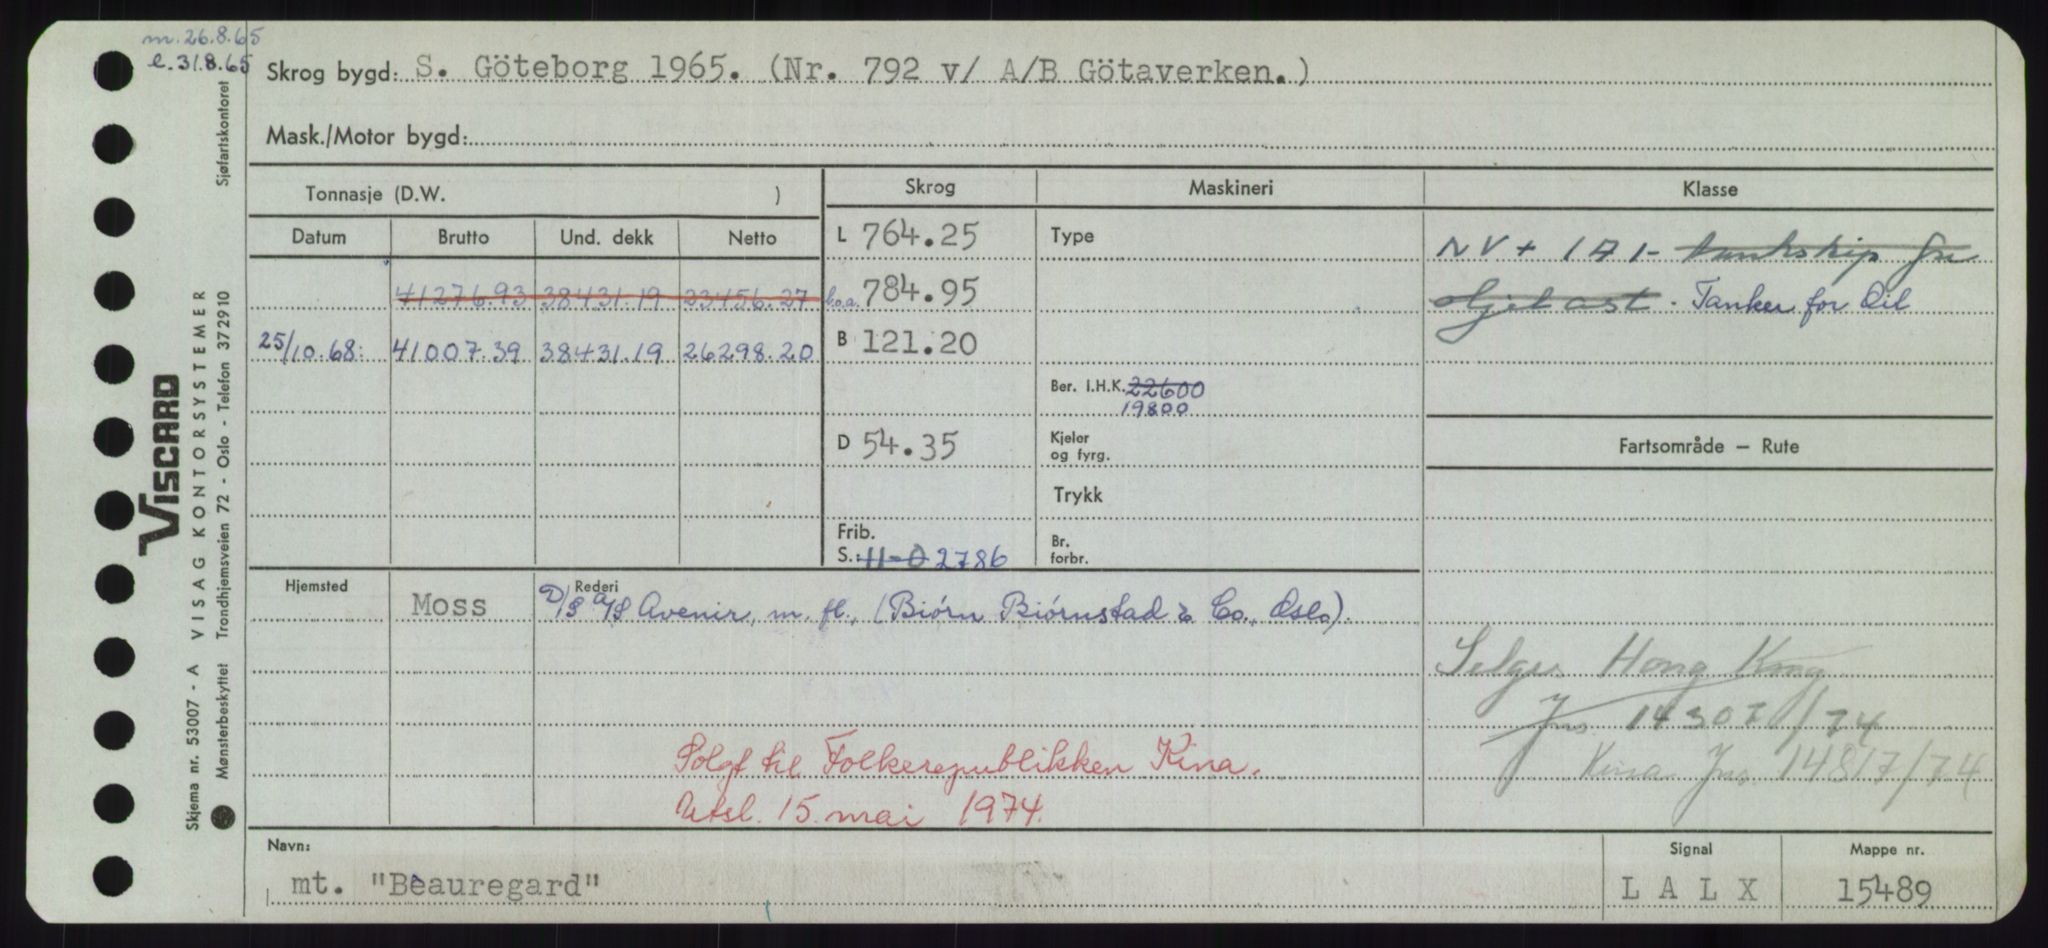 m. 26.8.65
l. 31.8.65
Skrog bygd: S. Göteborg 1965. (Nr. 792 v/ A/B Götaverken.)
Mask./Motor bygd:
Tonnasje (D.W. )
Skrog
Maskineri
Klasse
Datum
Brutto
Und. dekk
Netto
41276.93 38431.19 23456.27
25/10.68. 41007.39 38431.19 26298.20
L 764.25
l.o.a. 784.95
B 121.20
D 54.35
Frib.
S.: 11-0 2786
Type
Ber. I.H.K. 22600
19800
Kjeler
og fyrg.
Trykk
Br.
forbr.
NV + 1A1- tankskip for
oljelast. Tanker for Oil
Fartsområde – Rute
Selges Hong Kong
Jns. 14307/74
Kina Jns. 14817/74
Hjemsted
Moss
Rederi
D/S A/S Avenir, m. fl., (Biørn Biørnstad & Co., Oslo).
Solgt til Folkerepublikken Kina.
Utsl. 15. mai 1974.
Navn:
mt. "Beauregard"
Signal
LALX
Mappe nr.
15489
VISCARD
Skjema nr. 53007 - A VISAG KONTORSYSTEMER
Mønsterbeskyttet Trondhjemsveien 72 - Oslo - Telefon 372910 Sjøfartskontoret